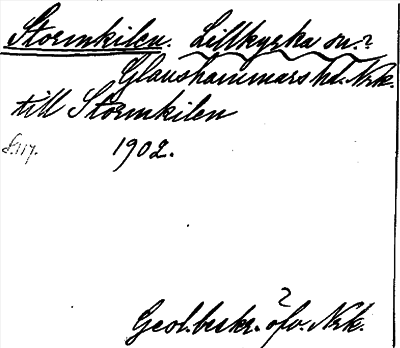 Stormkilen. Lillkyrka sn.?
Glanshammars hd. Nrk.
till Stormkilen
s.117. 1902.
Geol. beskr. ? öfv. Nrk.